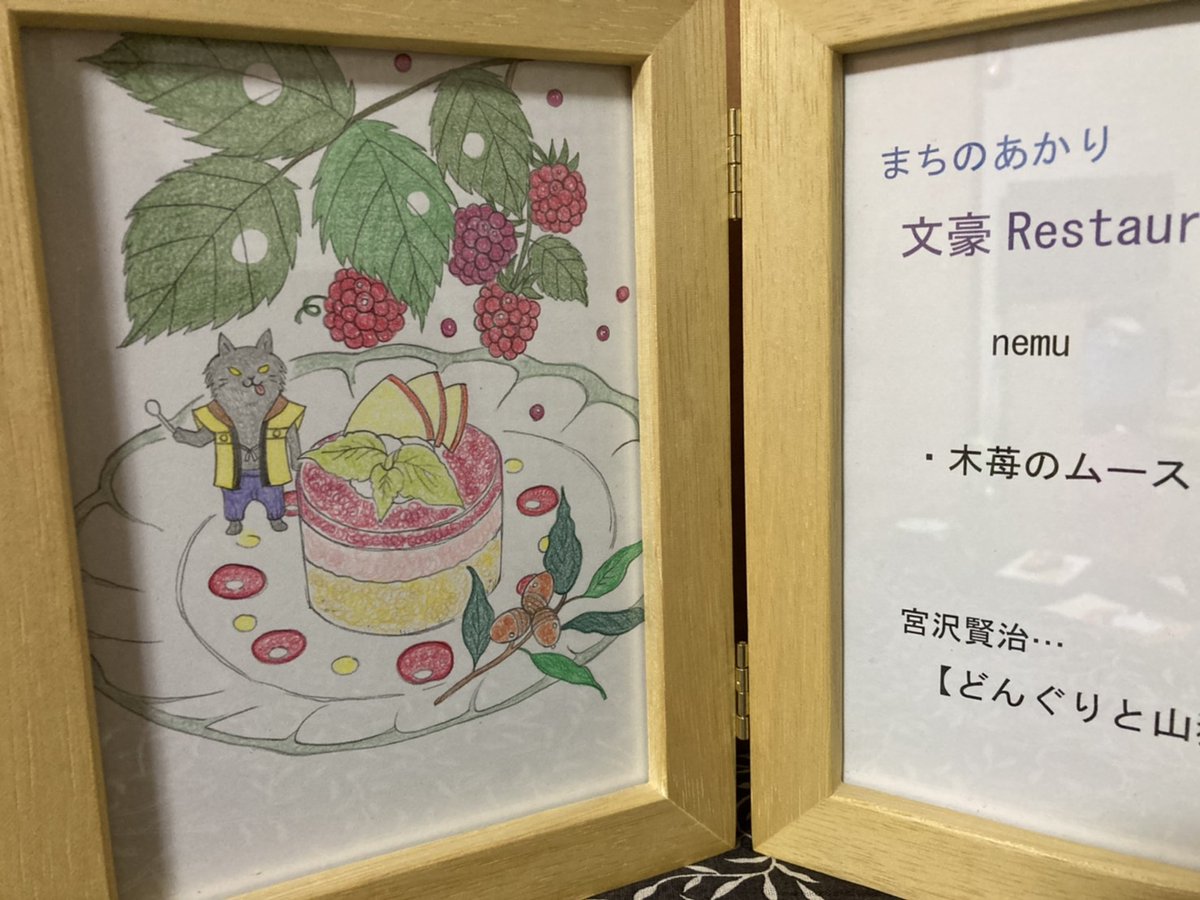 まちのあかり
文豪 Restaur
nemu
・木苺のムース
宮沢賢治…
【どんぐりと山